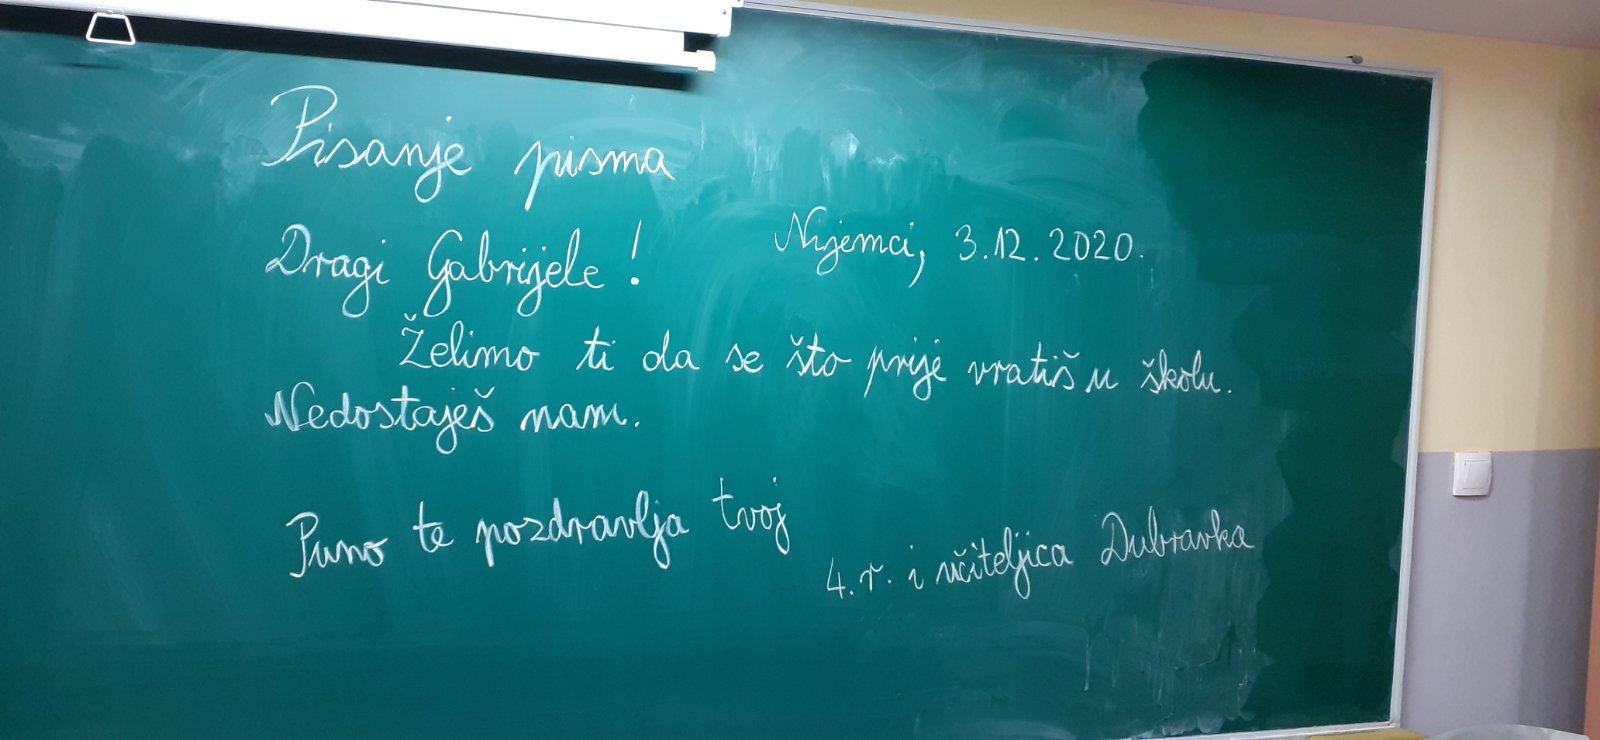 Pisanje pisma
Dragi Gabrijele! Nijemci, 3.12.2020.
Želimo ti da se što prije vratiš u školu.
Nedostaješ nam.
Puno te pozdravlja tvoj
4.r. i učiteljica Dubravka